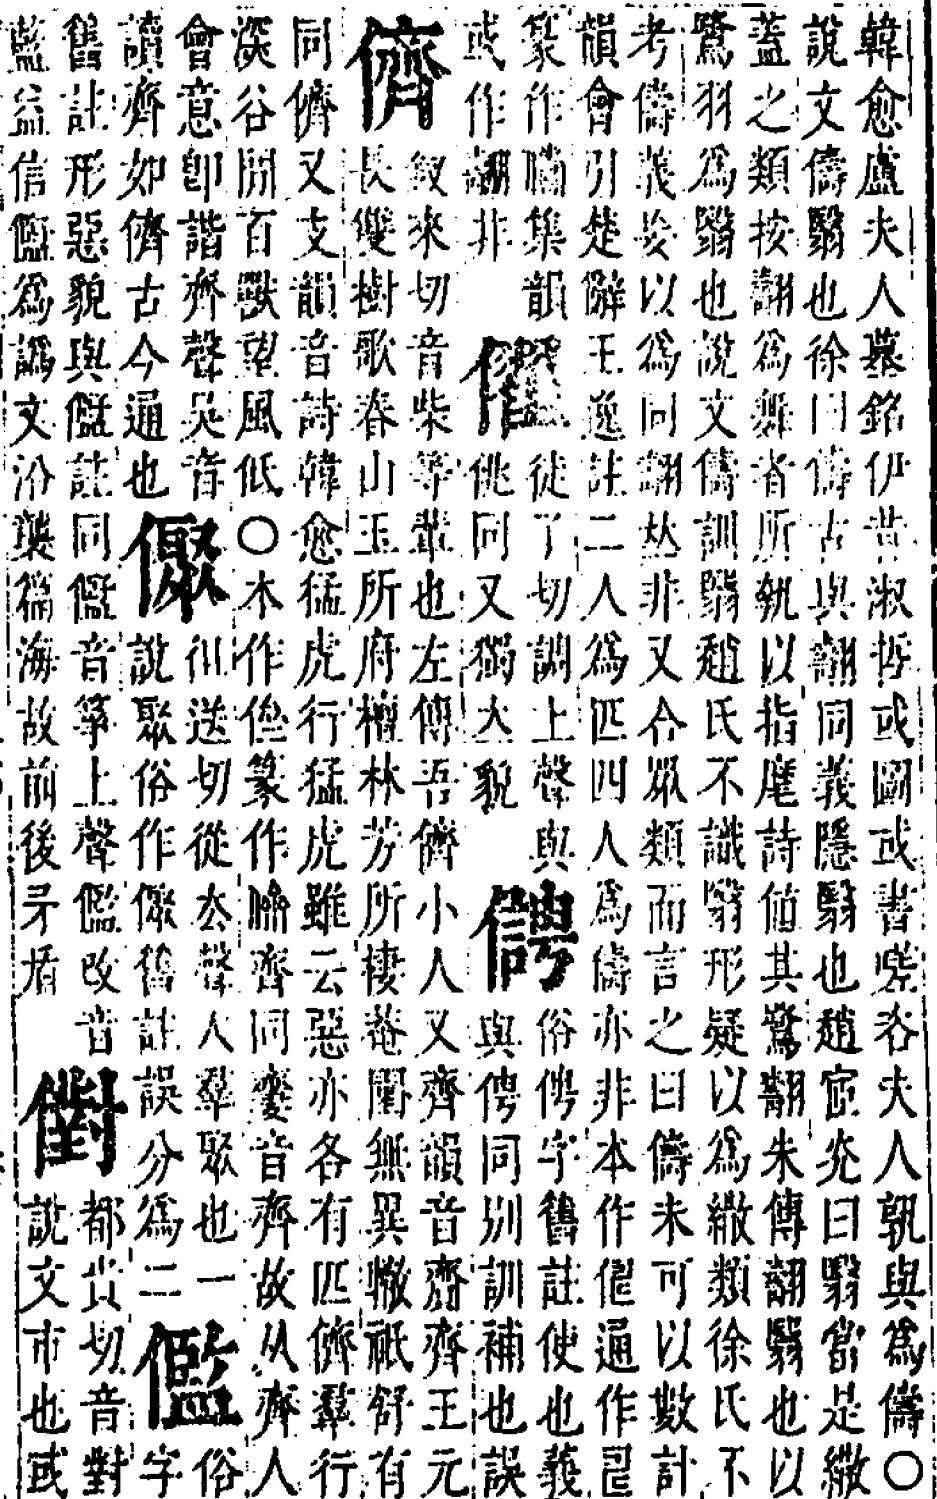 韓愈盧夫人墓銘伊昔淑哲或圖或書嗟咨夫人孰與為儔〇
說文儔翳也徐曰儔古與翿同義隱翳也趙宧光曰翳當是纛
蓋之類按翿為舞者所執以指麾詩值其鷺翿朱傳翿翳也以
鷺羽為翳也說文儔訓翳趙氏不識翳形疑以為纛類徐氏不
考儔義妄以為同翿𠀤非又合眾類而言之曰儔未可以數計
韻會引楚辭王逸註二人為匹四人為儔亦非本作𠷎通作
篆作 集韻
或作翿非
僺徒了切調上聲與
佻同又獨大貌
俜俗俜字舊註使也義
與俜同別訓補也誤
儕釵來切音柴等輩也左傳吾儕小人又齊韻音齋齊王元
長雙樹歌春山玉所府檀林芳所棲菴園無異轍祇舒有
同儕又支韻音詩韓愈猛虎行猛虎雖云惡亦各有匹儕羣行
深谷間百獸望風低〇本作 篆作 齊同 音齊故从齊人
會意卽諧齊聲吳音
讀齊如儕古今通也
㒇徂送切從去聲人羣聚也一
說聚俗作㒇舊註誤分為二
儖俗 字
舊註形惡貌與儖註同儖音箏上聲儖改音
藍益信儖為譌文沿襲徧海故前後矛盾
儥都貴切音對
說文市也或